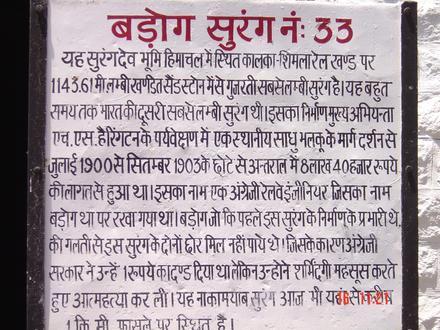 बड़ोग सुरंग नं: 33
यह सुरंगदेव भूमि हिमाचल में स्थित कालका-शिमला रेल खण्ड पर
1143.61 मी लम्बी खण्डित सैंडस्टोन में से गुजरती सबसे लम्बी सुरंग है। यह बहुत
समय तक भारत की दूसरी सबसे लम्बी सुरंग थी। इसका निर्माण मुख्य अभियन्ता
एच. एस. हैरिंगटन के पर्यवेक्षण में एक स्थानीय साधु भलकू के मार्ग दर्शन से
जुलाई 1900 से सितम्बर 1903 के छोटे से अन्तराल में 8 लाख 40 हजार रूपये
की लागत से हुआ था। इसका नाम एक अंग्रेजी रेलवे इंजीनियर जिसका नाम
बड़ोग था पर रखा गया था। बड़ोग जो कि पहले इस सुरंग के निर्माण के प्रभारी थे,
की गलती से इस सुरंग के दोनों छोर मिल नहीं पाये थे। जिसके कारण अंग्रेजी
सरकार ने उन्हें 1 रूपये का दण्ड दिया था लेकिन उन्होने शर्मिंदगी महसूस करते
हुए आत्महत्या कर ली। यह नाकामयाब सुरंग आज भी यहां से करीब
1 कि. मी. फासले पर स्थित है।
16 11:21